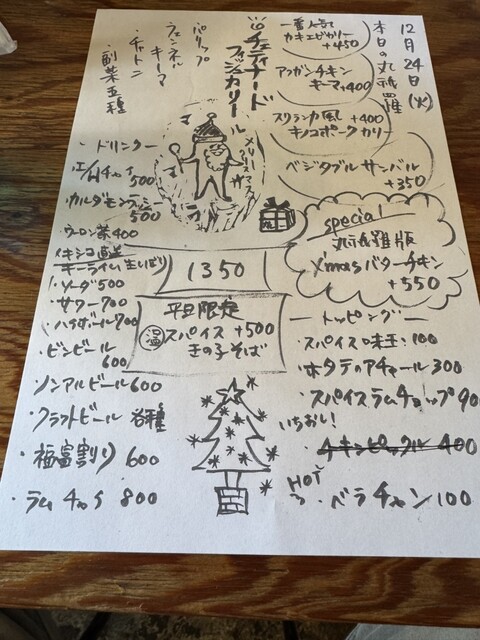 12月24日(火)
本日の丸祇羅
一番人気
カキエビカリー
+450
アフガンチキン
キーマ+400
スリランカ風 +400
キノコポークカリー
ベジタブルサンバル
+350
special
丸祇羅版
X'masバターチキン
+550
トッピング
スパイス味玉:100
ホタテのアチャール300
スパイスラムチョップ900
いちおし!
チキンピックル 400
HOT
ベラチャン100
チェティナード
フィッシュカリー
パリップ
フェンネル
キーマ
チャトニ
副菜五種
メリークリスマス
1350
平日限定
温 スパイス +500
きの子そば
ドリンク
500
カルダモンティー
500
ウーロン茶400
メキシコ直送
キーライム(生しぼり)
・ソーダ500
・サワー700
・ハイボール700
・ビンビール
600
・ノンアルビール600
・クラフトビール 各種
・福富割り 600
・ラムチャイ 800